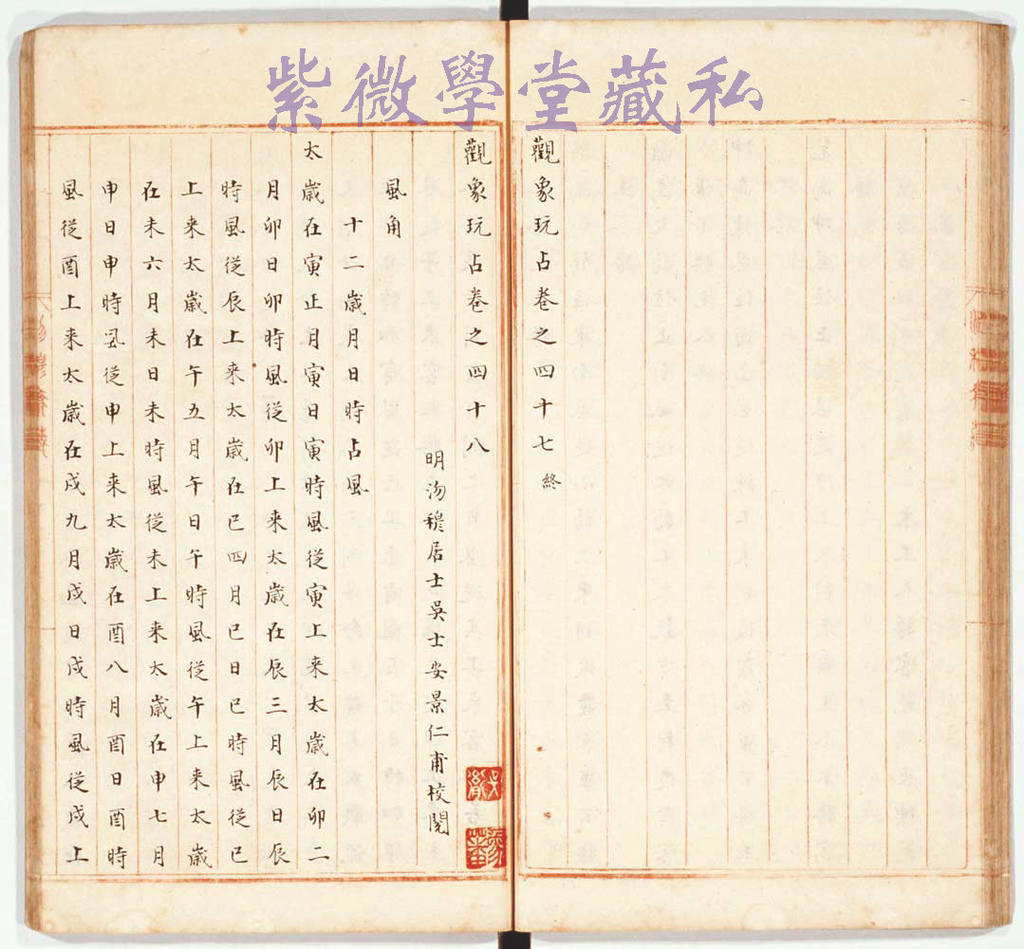 紫微學堂藏私
觀象玩占卷之四十七終
觀象玩占卷之四十八
明沕穆居士吳士安景仁甫校閱
風角
十二歲月日時占風
太歲在寅正月寅日寅時風從寅上来太歲在卯二
月卯日卯時風從卯上来太歲在辰三月辰日辰
時風從辰上来太歲在巳四月巳日巳時風從巳
上来太歲在午五月午日午時風從午上来太歲
在未六月未日未時風從未上来太歲在申七月
申日申時風從申上来太歲在酉八月酉日酉時
風從酉上来太歲在戌九月戌日戌時風從戌上